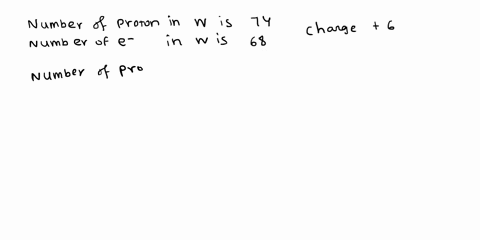 Number of proton in W is 74
Number of e- in W is 68
Charge + 6
Number of pro